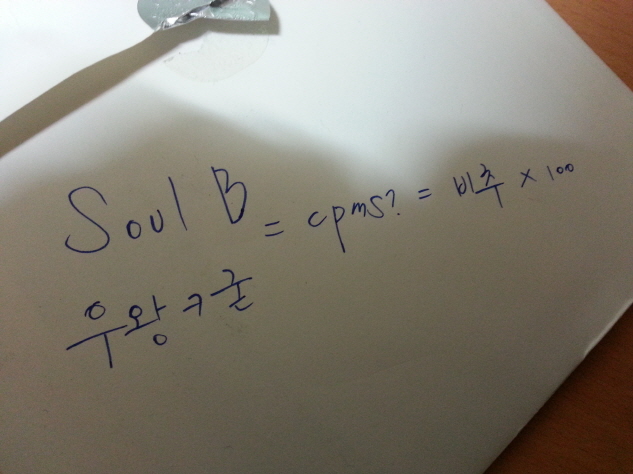 Soul B = cpms? = 비추 × 100
우왕ㅋ굳